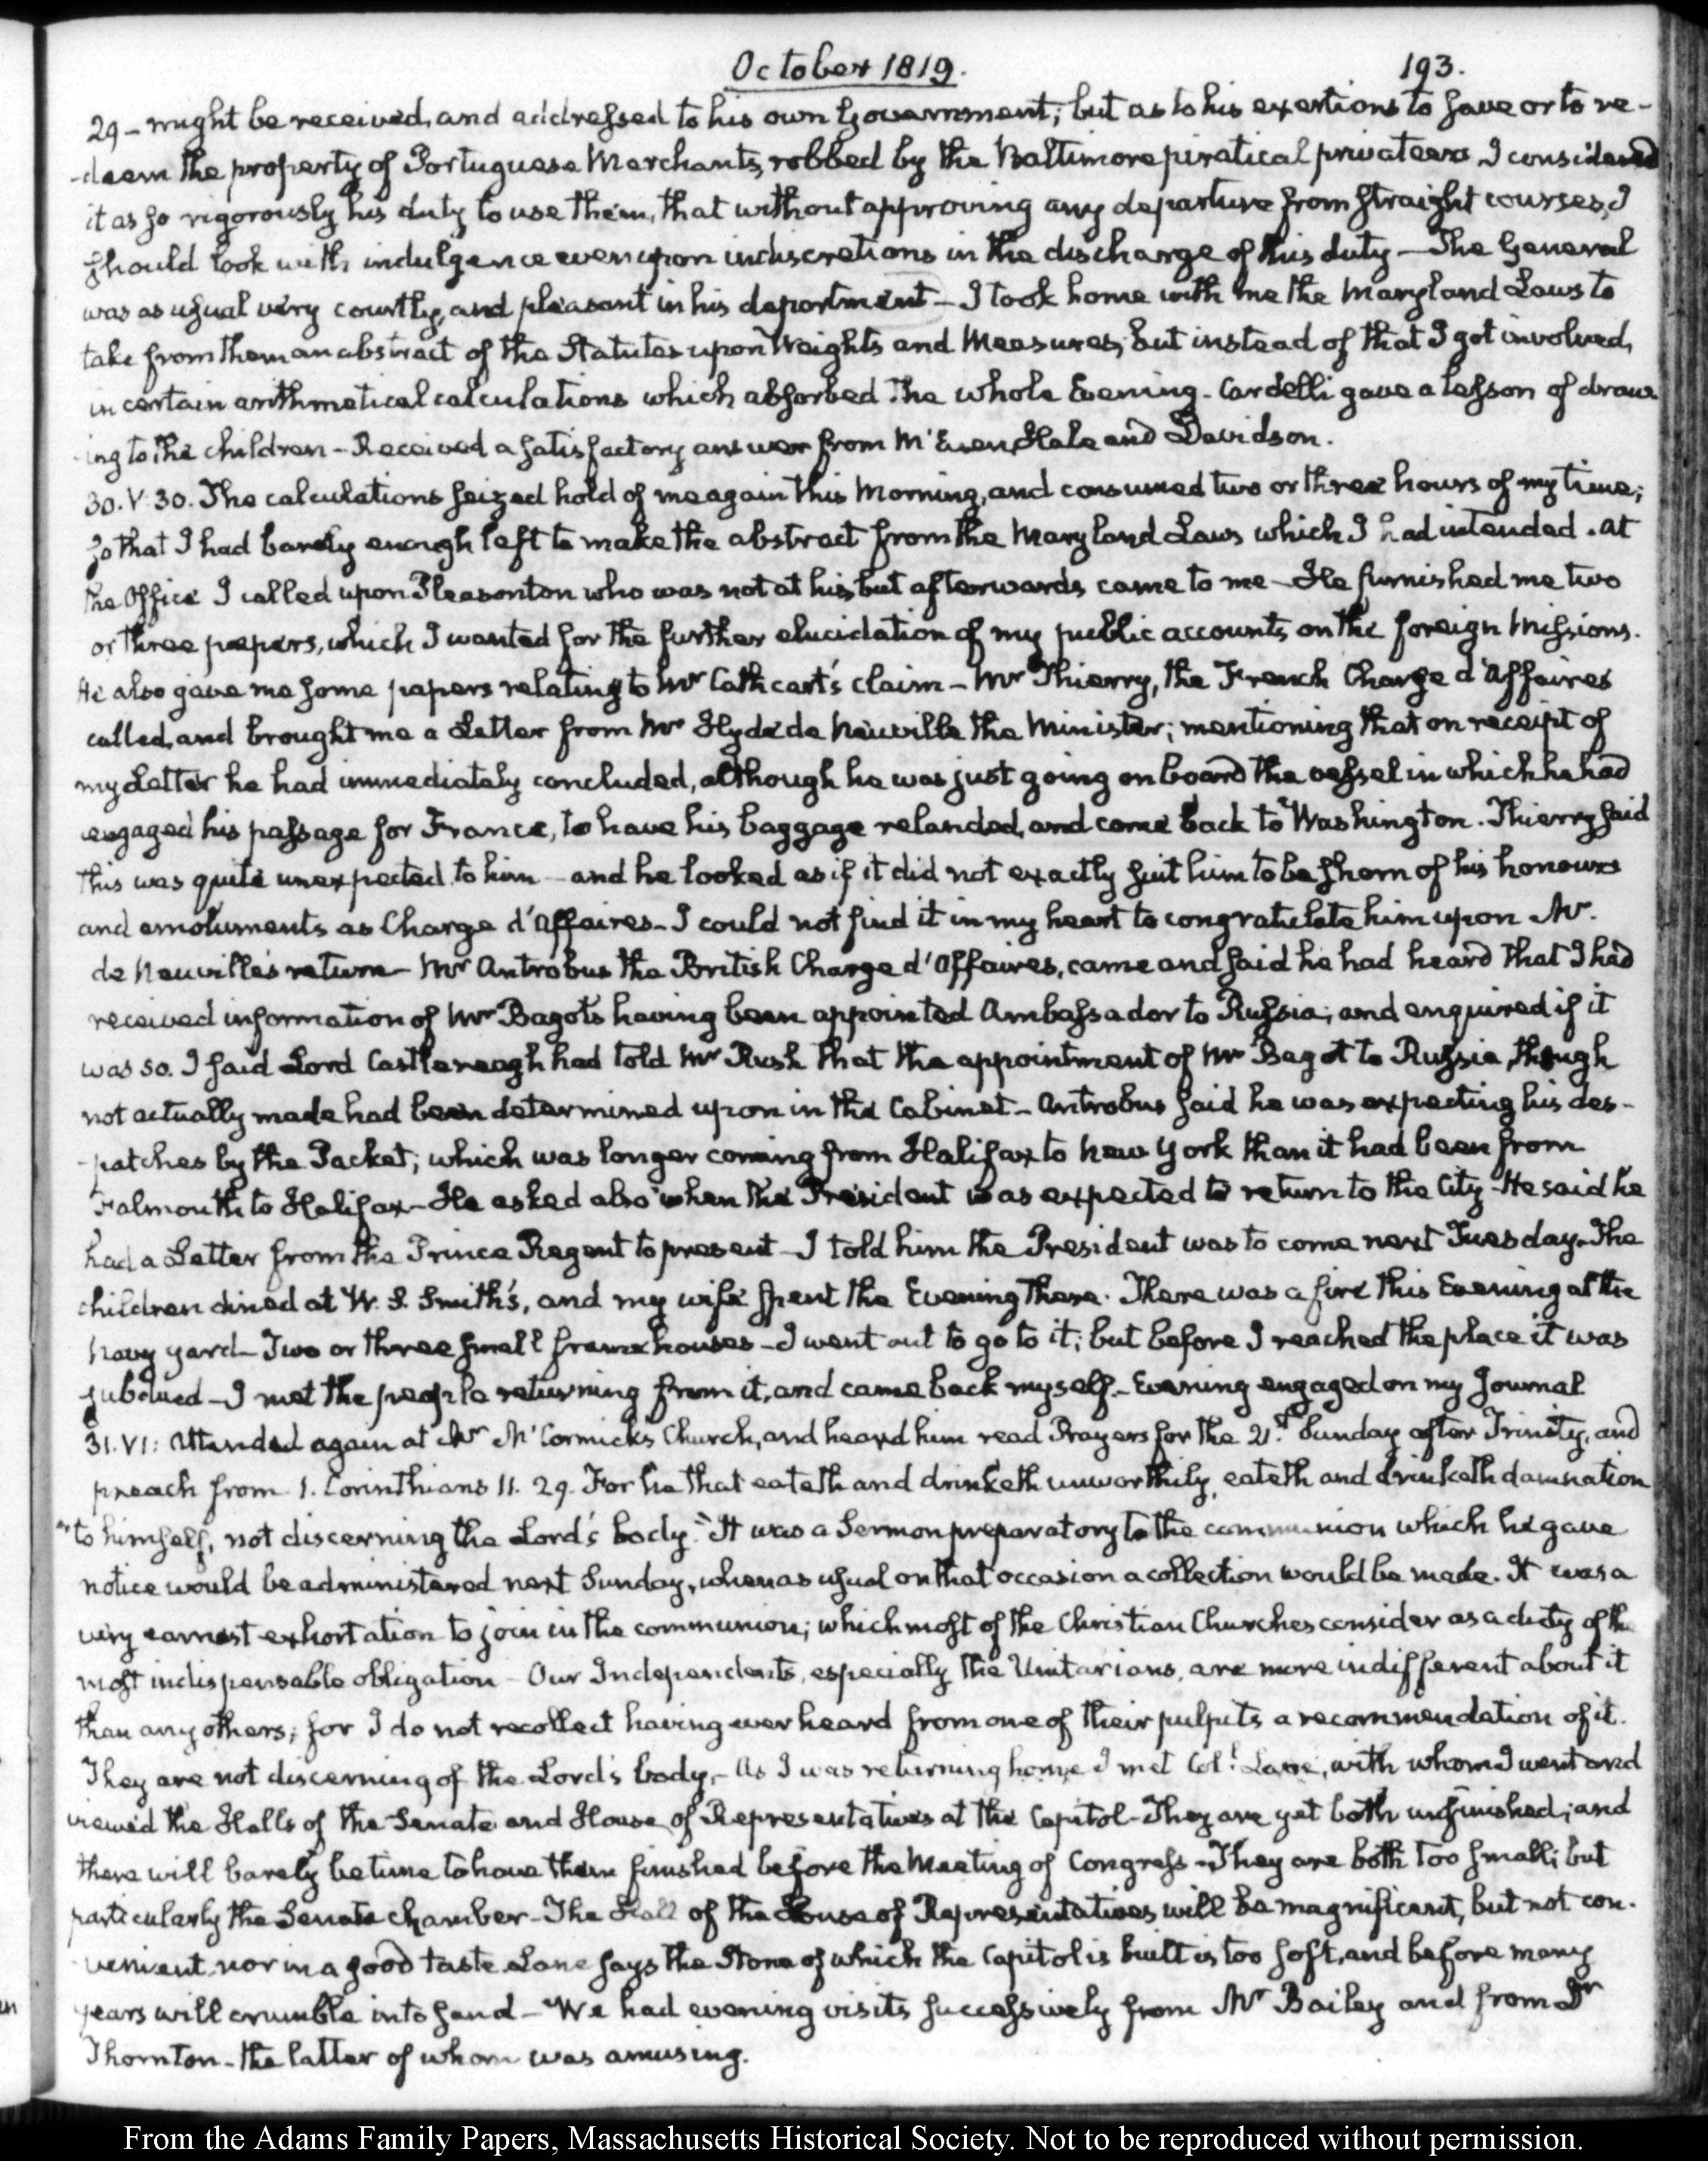 October 1819. 193.
29 – might be received, and addressed to his own Government; but as to his exertions to save or to re-
-deem the property of Portuguese Merchants, robbed by the Baltimore piratical privateers I considered
it as so rigorously his duty to use them, that without approving any departure from straight courses, I
should look with indulgence even upon indiscretions in the discharge of this duty – The General
was as usual very courtly, and pleasant in his deportment – I took home with me the Maryland Laws to
take from them an abstract of the Statutes upon Weights and Measures; but instead of that I got involved,
in certain arithmetical calculations which absorbed the whole Evening – Cardelli gave a lesson of draw
-ing to the children – Received a satisfactory answer from McEuen, Hale and Davidson.
30. V:30. The calculations seized hold of me again this Morning, and consumed two or three hours of my time;
so that I had barely enough left to make the abstract from the Maryland Laws which I had intended. At
the Office I called upon Pleasonton who was not at his, but afterwards came to me – He furnished me two
or three papers, which I wanted for the further elucidation of my public accounts, on the foreign Missions.
He also gave me some papers relating to Mr Cathcart's claim – Mr Thierry, the French Chargé d'Affaires
called, and brought me a Letter from Mr Hyde de Neuville the Minister; mentioning that on receipt of
my Letter he had immediately concluded, although he was just going on board the vessel in which he had
engaged his passage for France, to have his baggage relanded, and come back to Washington. Thierry said
this was quite unexpected to him – and he looked as if it did not exactly suit him to be shorn of his honours
and emoluments as Charge d'Affaires – I could not find it in my heart to congratulate him upon Mr.
de Neuville's return – Mr Antrobus the British Charge d'Affaires, came and said he had heard that I had
received information of Mr Bagot's having been appointed Ambassador to Russia; and enquired if it
was so. I said Lord Castlereagh had told Mr Rush that the appointment of Mr Bagot to Russia, though
not actually made had been determined upon in the Cabinet – Antrobus said he was expecting his des-
-patches by the Packet; which was longer coming from Halifax to New York than it had been from
Falmouth to Halifax – He asked also when the President was expected to return to the City – He said he
had a Letter from the Prince Regent to present – I told him the President was to come next Tuesday – The
children dined at W. S. Smith's, and my wife spent the Evening there. There was a fire this Evening at the
Navy yard – Two or three small frame houses – I went out to go to it; but before I reached the place it was
subdued – I met the people returning from it, and came back myself – Evening engaged on my Journal
31. VI: Attended again at Mr McCormick's Church, and heard him read Prayers for the 21st Sunday after Trinity, and
preach from 1. Corinthians 11. 29. For he that eateth and drinketh unworthily, eateth and drinketh damnation
"to himself, not discerning the Lord's body." It was a Sermon preparatory to the communion which he gave
notice would be administered next Sunday, when as usual on that occasion a collection would be made. It was a
very earnest exhortation to join in the communion; which most of the Christian Churches consider as a duty of the
most indispensable obligation – Our Independents, especially the Unitarians, are more indifferent about it
than any others; for I do not recollect having ever heard from one of their pulpits a recommendation of it.
They are not discerning of the Lord's body – As I was returning home I met Coll. Lane, with whom I went and
viewed the Halls of the Senate and House of Representatives at the Capitol – They are yet both unfinished; and
there will barely be time to have them finished before the Meeting of Congress – They are both too small; but
particularly the Senate chamber – The Hall of the House of Representatives will be magnificent, but not con-
-venient nor in a good taste. Lane says the Stone of which the Capitol is built is too soft, and before many
years will crumble into sand – We had evening visits successively from Mr Bailey and from Dr
Thornton – the latter of whom was amusing.
From the Adams Family Papers, Massachusetts Historical Society. Not to be reproduced without permission.